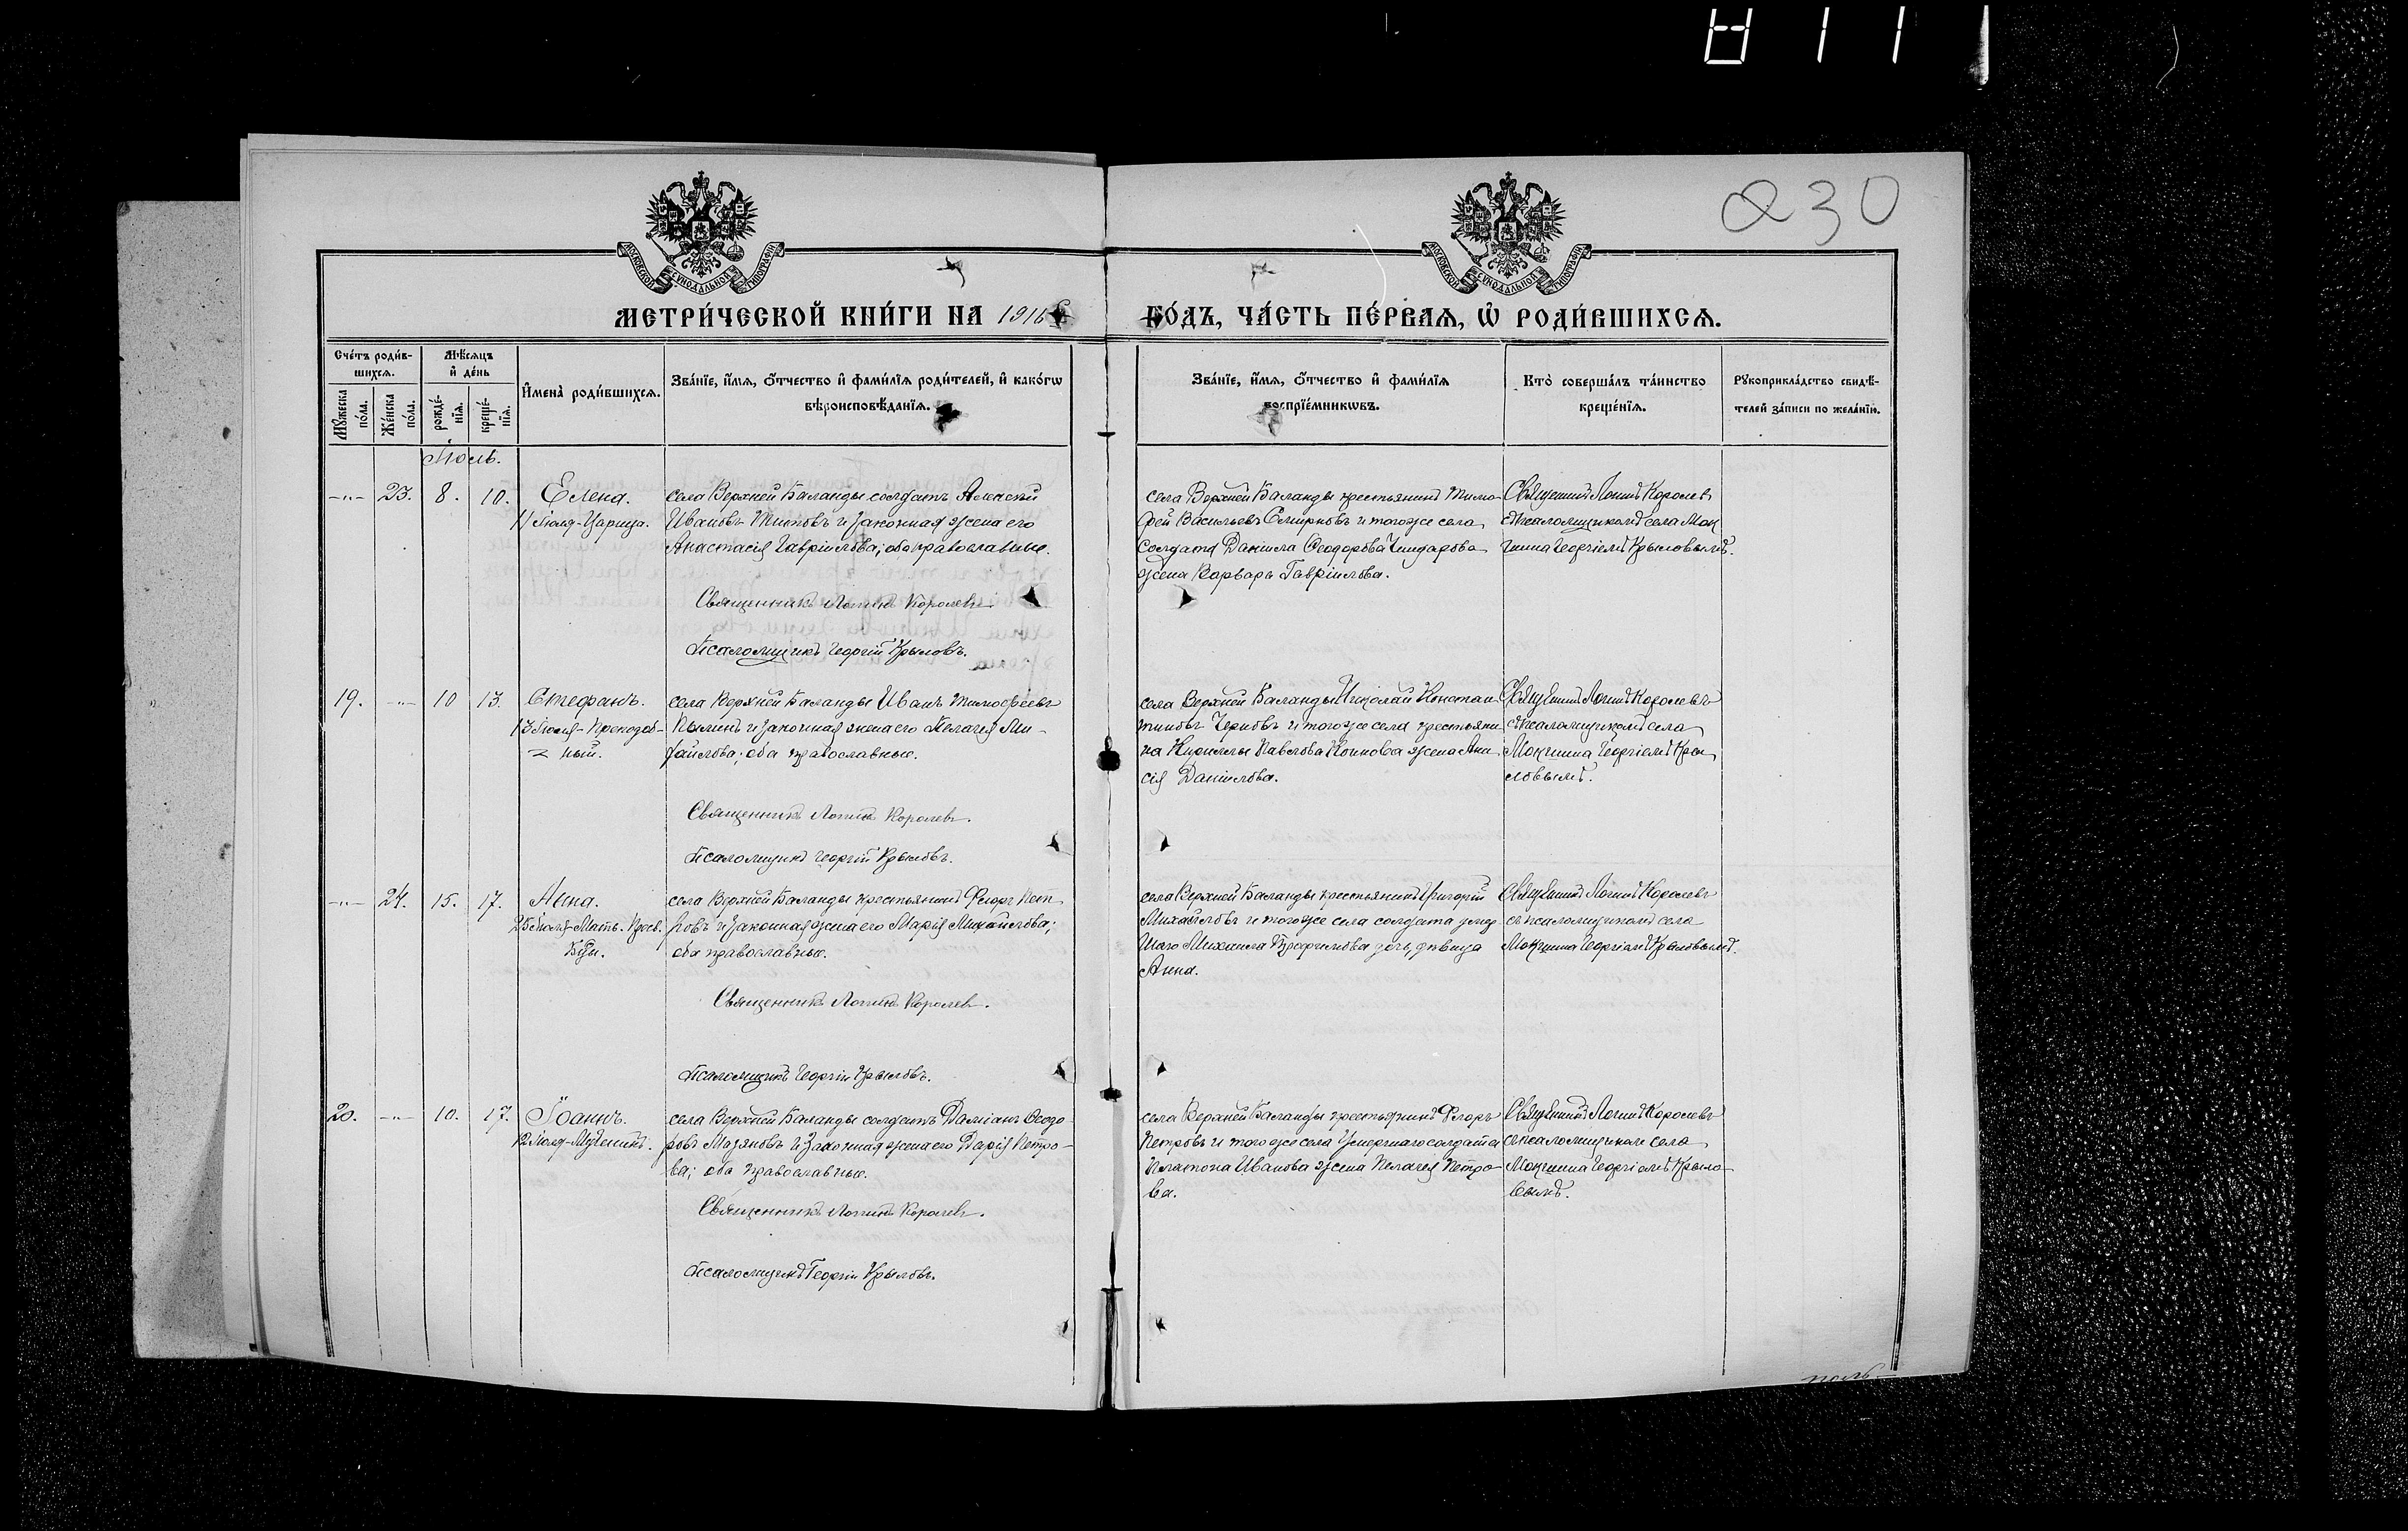 230
МОСКОВСКОЙ СѴНОДАЛЬНОЙ ТИПОГРАФІИ
МОСКОВСКОЙ СѴНОДАЛЬНОЙ ТИПОГРАФІИ
МЕТРИ́ЧЕСКОЙ КНИ́ГИ НА 1916
ГО́ДЪ, ЧА́СТЬ ПЕ́РВАѦ, Ѡ҆ РОДИ́ВШИХСѦ.
Сче́тъ роди́в-
шихсѧ.
Мѣ́сѧцъ
и҆ де́нь
Мꙋ́жеска по́ла.
Же́нска по́ла.
рожде́-
нїѧ.
креще́-
нїѧ.
И҆мена̀ роди́вшихсѧ.
Зва́нїе, и҆́мѧ, ѻ҆́тчество и҆ фами́лїѧ роди́телей, и҆ како́гѡ
вѣроисповѣ́данїѧ.
Зва́нїе, и҆́мѧ, ѻ҆́тчество и҆ фами́лїѧ
воспрїе́мникѡвъ.
Кто̀ соверша́лъ та́инство
креще́нїѧ.
Рꙋкоприкла́дство свидѣ́-
телей за́писи по жела́нїю.
Іюль.
-"- 23. 8. 10. Елена.
11 Іюля-Царица.
села Верхней Баланды солдатъ Алексѣй
Ивановъ Титовъ и законная жена его
Анастасія Гавріилова; оба православные.
Священникъ Логинъ Королевъ.
Псаломщикъ Георгій Крыловъ.
села Верхней Баланды крестьянинъ Тимо-
фей Васильевъ Смирновъ и тогоже села
солдата Даніила Ѳеодорова
жена Варвара Гавріилова.
Священникъ Логинъ Королевъ
съ псаломщикомъ села Мок
шина Георгіемъ Крыловымъ.
19. -"- 10 13. Стефанъ.
13 Іюля-Преподоб-
ный.
села Верхней Баланды Иванъ Тимофеевъ
и законная жена его Пелагея Ми-
хайлова; оба православные.
Священникъ Логинъ Королевъ.
Псаломщикъ Георгій Крыловъ.
села Верхней Баланды Николай Констан
тиновъ Черновъ и тогоже села крестьяни
на Кириллы Павлова жена Ани
сія Даніилова.
Священникъ Логинъ Королевъ
съ псаломщикомъ села
Мокшина Георгіемъ Кры
ловымъ.
-"- 24. 15. 17. Анна.
25 Іюля-Мать. Прес.
Бцы.
села Верхней Баланды крестьянинъ Флоръ Пет
ровъ и законная жена его Марія Михайлова;
оба православные.
Священникъ Логинъ Королевъ.
Псаломщикъ Георгій Крыловъ.
села Верхней Баланды крестьянинъ Григорій
Михайловъ и тогоже села солдата умер
шаго Михаила Трофимова дочь, дѣвица
Анна.
Священникъ Логинъ Королевъ
съ псаломщикомъ села
Мокшина Георгіемъ Крыловымъ.
20. -"- 10. 17. Іоаннъ.
12 Іюля-Мученикъ.
села Верхней Баланды солдатъ Даміанъ Ѳеодо
ровъ Мазяновъ и законная жена его Дарія Петро-
ва; оба православные.
Священникъ Логинъ Королевъ.
Псаломщикъ Георгій Крыловъ.
села Верхней Баланды крестьянинъ Флоръ
Петровъ и тогоже села умершаго солдата
Платона Иванова жена Пелагея Петро-
ва.
Священникъ Логинъ Королевъ
съ псаломщикомъ села
Мокшина Георгіемъ Крыло-
вымъ.